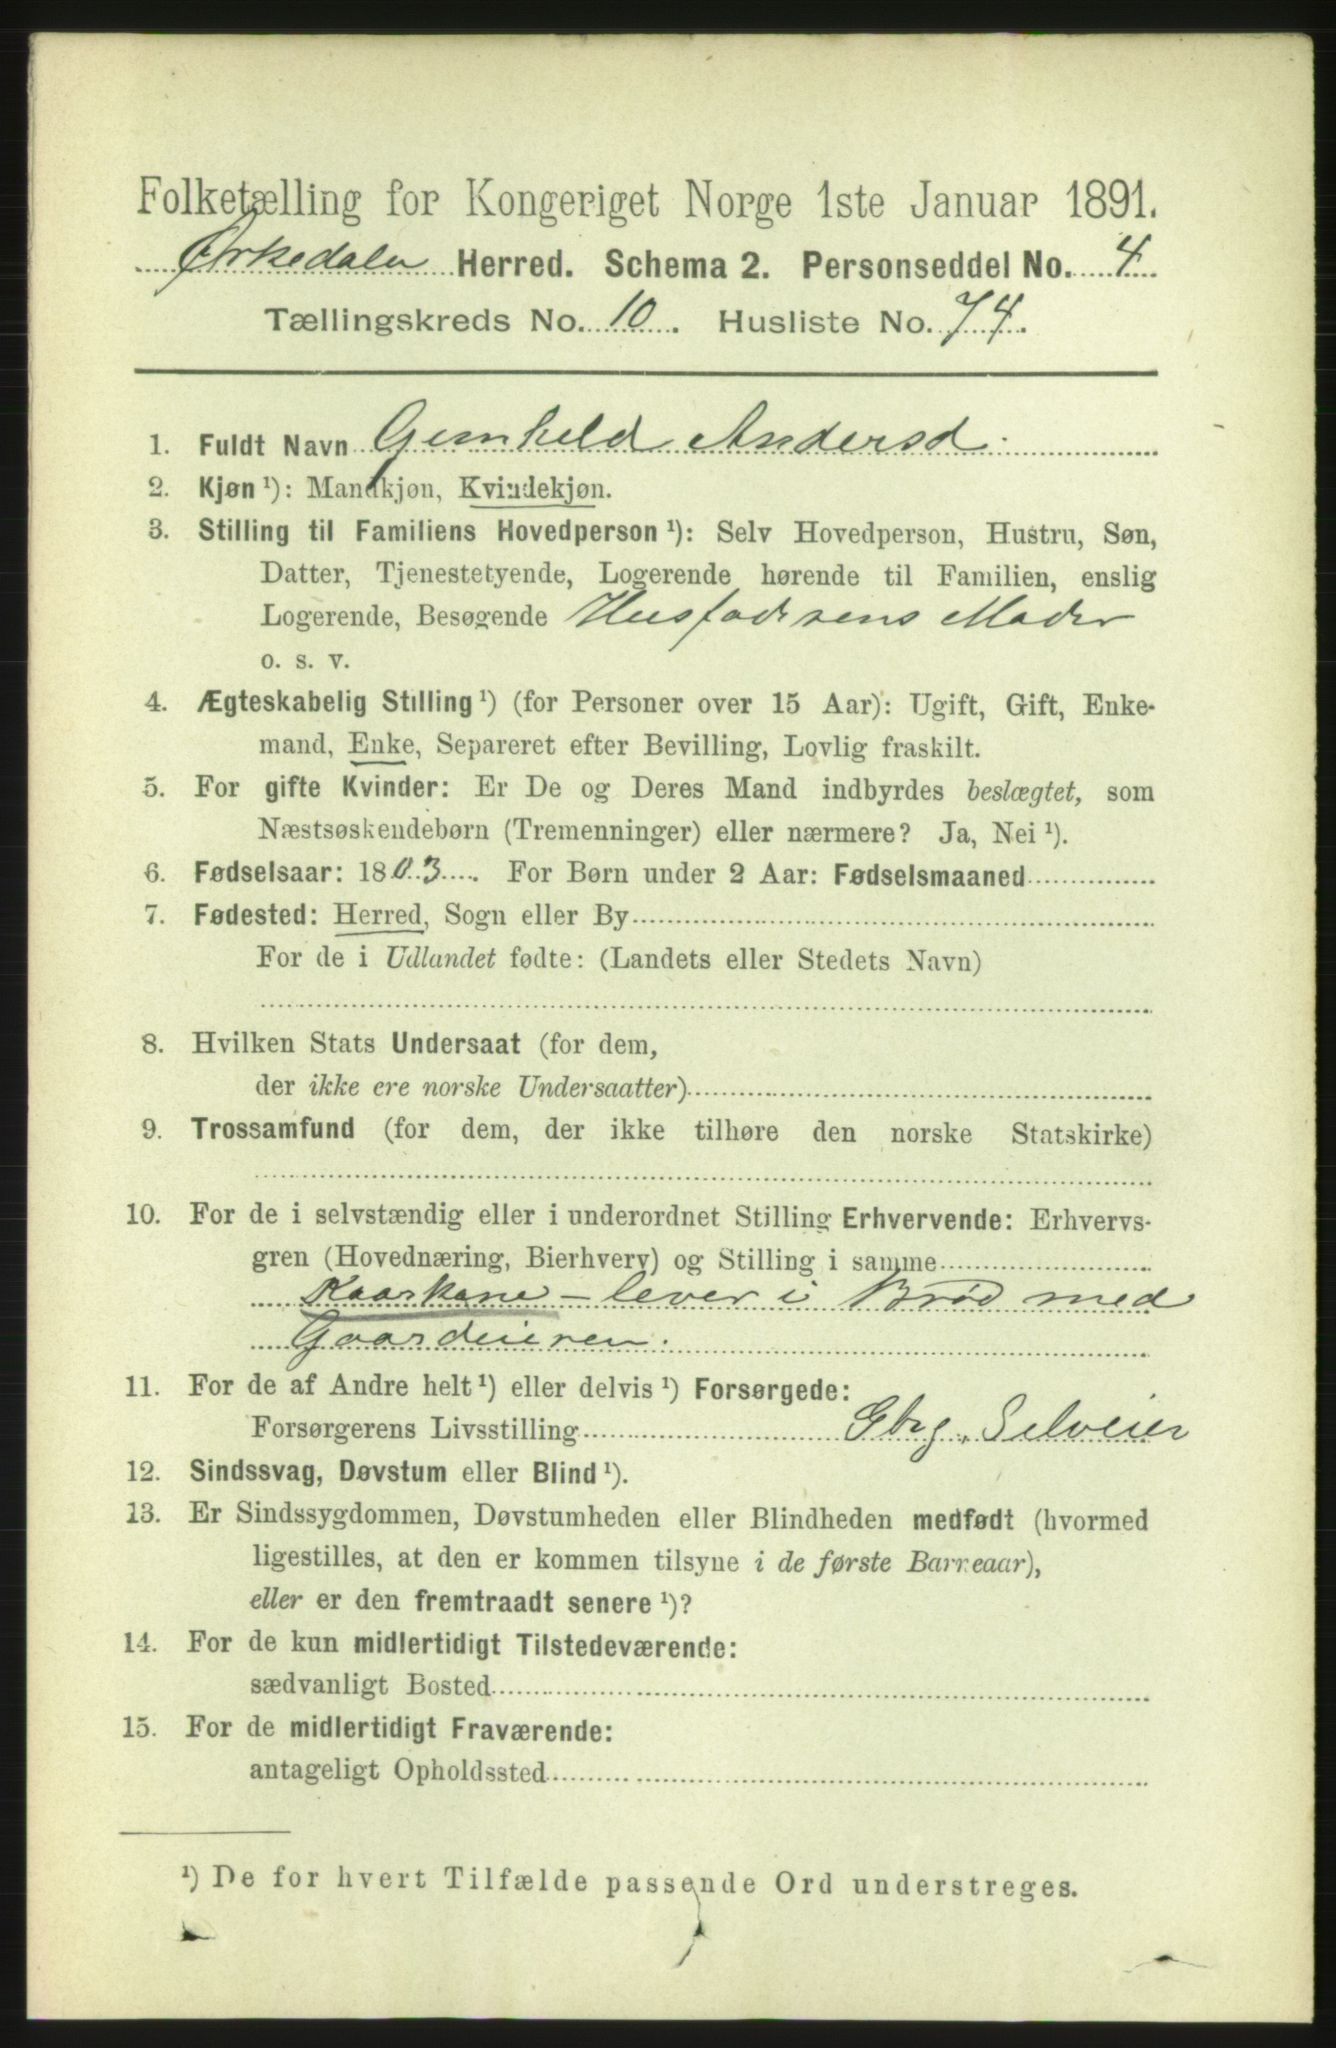 Folketælling for Kongeriget Norge 1ste Januar 1891.
Ørkedalen Herred. Schema 2. Personseddel No. 4
Tællingskreds No. 10. Husliste No. 74.
1. Fuldt Navn Gunhild Andersd.
2. Kjøn ¹): Mandkjøn, Kvindekjøn.
3. Stilling til Familiens Hovedperson ¹): Selv Hovedperson, Hustru, Søn,
Datter, Tjenestetyende, Logerende hørende til Familien, enslig
Logerende, Besøgende Husfaderens Moder
o. s. v.
4. Ægteskabelig Stilling ¹) (for Personer over 15 Aar): Ugift, Gift, Enke-
mand, Enke, Separeret efter Bevilling, Lovlig fraskilt.
5. For gifte Kvinder: Er De og Deres Mand indbyrdes beslægtet, som
Næstsøskendebørn (Tremenninger) eller nærmere? Ja, Nei ¹).
6. Fødselsaar: 1803. For Børn under 2 Aar: Fødselsmaaned
7. Fødested: Herred, Sogn eller By
For de i Udlandet fødte: (Landets eller Stedets Navn)
8. Hvilken Stats Undersaat (for dem,
der ikke ere norske Undersaatter)
9. Trossamfund (for dem, der ikke tilhøre den norske Statskirke)
10. For de i selvstændig eller i underordnet Stilling Erhvervende: Erhvervs-
gren (Hovednæring, Bierhverv) og Stilling i samme
Kaarkone - lever i Brød med
Gaardeieren.
11. For de af Andre helt ¹) eller delvis ¹) Forsørgede:
Forsørgerens Livsstilling Gbrg. Selveier
12. Sindssvag, Døvstum eller Blind ¹).
13. Er Sindssygdommen, Døvstumheden eller Blindheden medfødt (hvormed
ligestilles, at den er kommen tilsyne i de første Barneaar),
eller er den fremtraadt senere ¹)?
14. For de kun midlertidigt Tilstedeværende:
sædvanligt Bosted
15. For de midlertidigt Fraværende:
antageligt Opholdssted
¹) De for hvert Tilfælde passende Ord understreges.